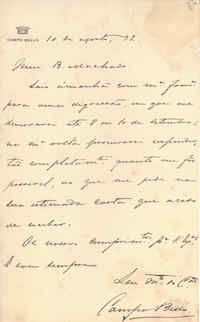 CAMPO BELLO
10 de agosto, 92
Meu B. Machado
Saio ámanhã com mª famª
para uma digressão, em que me
demorarei até 8 ou 10 de setembro;
na mª volta procurarei responder,
tão completamente quanto me for
possivel, ao que me pede na
sua estimada carta que acabo
de receber.
Os nossos cumprimentos pª V. Exª
E sou sempre
Seu
Campo Bello